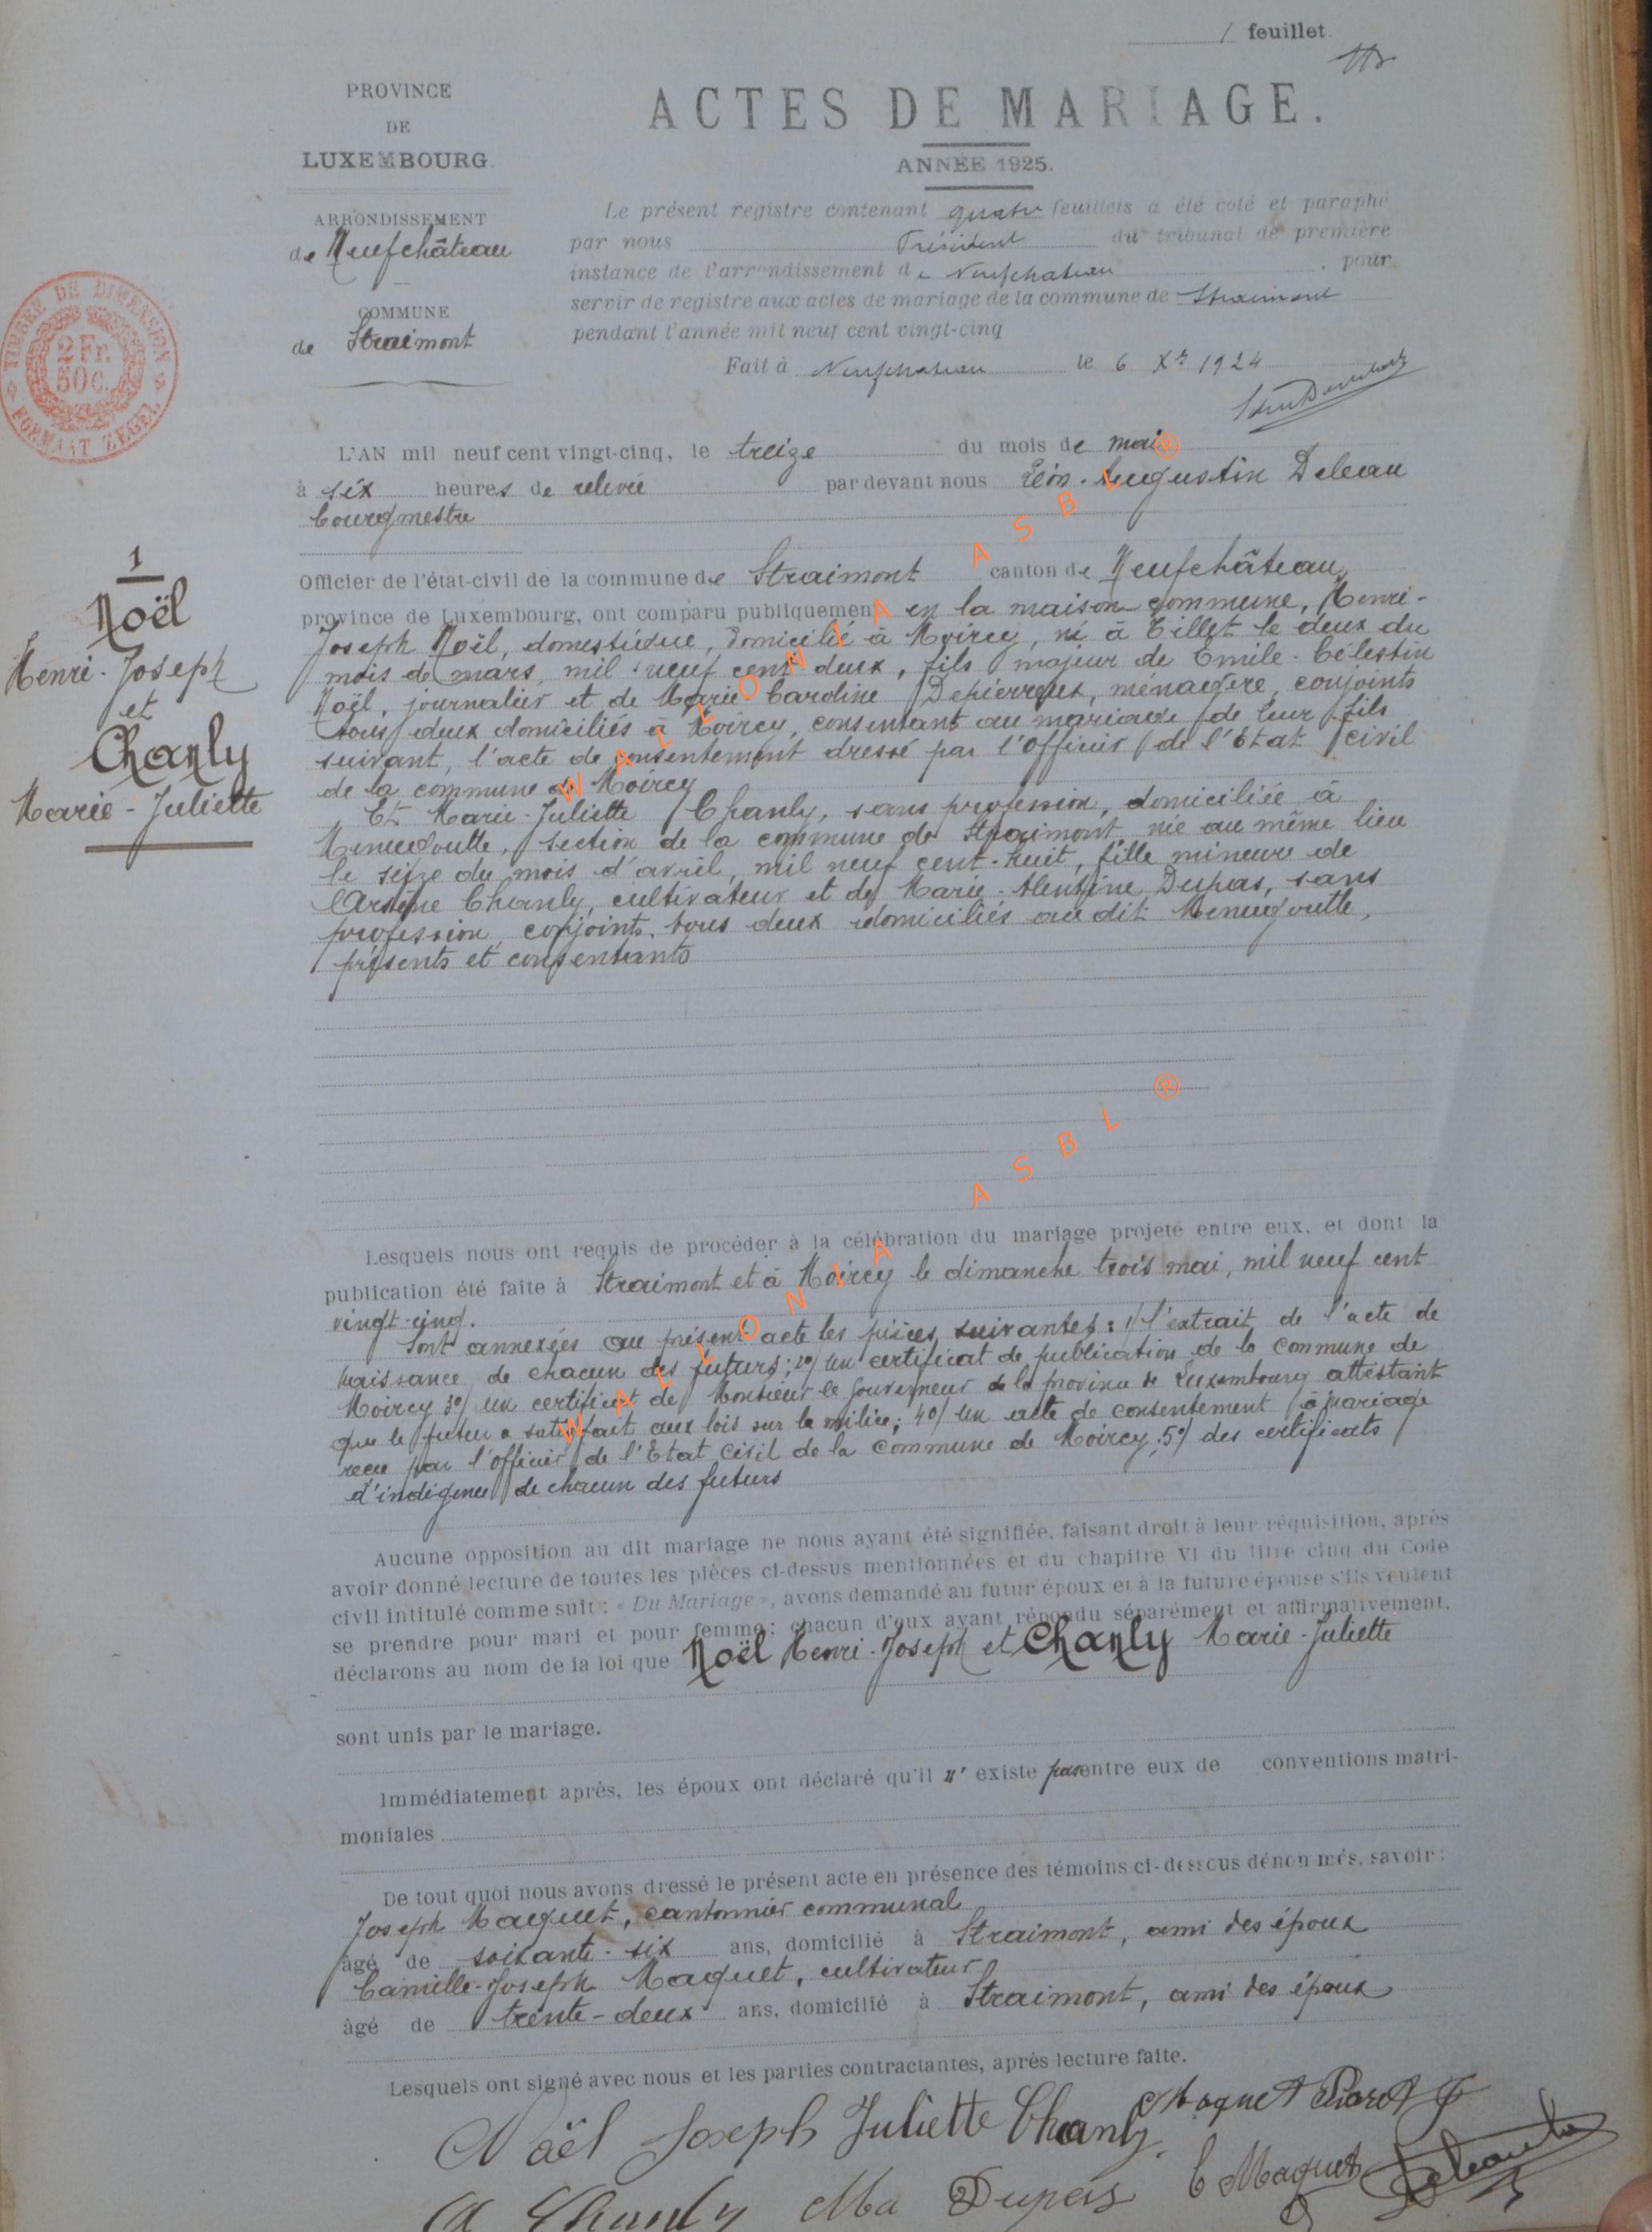 1 feuillet
PROVINCE
DE
LUXEMBOURG
ARRONDISSEMENT
de Neufchâteau
COMMUNE
de Straimont
TIMBRE DE DIMENSION
2 Fr.
50 C.
FORMAAT ZEGEL
ACTES DE MARIAGE.
ANNÉE 1925.
Le présent registre contenant quatre feuillets a été coté et paraphé
par nous Président du tribunal de première
instance de l'arrondissement de Neufchateau , pour
servir de registre aux actes de mariage de la commune de Straimont
pendant l'année mil neuf cent vingt-cinq
Fait à Neufchateau le 6 Xbre 1924
L'AN mil neuf cent vingt-cinq, le treize du mois de mai
à six heures de relevée par devant nous Léon-Augustin Deleau
bourgmestre
1
Noël
Henri-Joseph
et
Chanly
Marie-Juliette
Officier de l'état-civil de la commune de Straimont canton de Neufchâteau,
province de Luxembourg, ont comparu publiquement en la maison commune, Henri-
Joseph Noël, domestique, domicilié à Moircy, né à Tillet le deux du
mois de mars, mil neuf cent deux, fils majeur de Emile-Célestin
Noël, journalier et de Marie Caroline Depierreux, ménagère, conjoints
tous deux domiciliés à Moircy, consentant au mariage de leur fils
suivant, l'acte de consentement dressé par l'Officier de l'Etat civil
de la commune de Moircy
Et Marie-Juliette Chanly, sans profession, domiciliée à
Menugoutte, section de la commune de Straimont née au même lieu
le seize du mois d'avril, mil neuf cent-huit, fille mineure de
Arsène Chanly, cultivateur et de Marie-Alentine Dupas, sans
profession, conjoints, tous deux domiciliés au dit Menugoutte,
présents et consentants
WALLONIA ASBL ®
WALLONIA ASBL ®
Lesquels nous ont requis de procéder à la célébration du mariage projeté entre eux, et dont la
publication été faite à Straimont et à Moircy le dimanche trois mai, mil neuf cent
vingt-cinq.
Sont annexées au présent acte les pièces suivantes: 1/ l'extrait de l'acte de
naissance de chacun des futurs; 2o/ un certificat de publication de la commune de
Moircy 3o/ un certificat de Monsieur le Gouverneur de la province de Luxembourg attestant
que le futur a satisfait aux lois sur la milice; 4o/ un acte de consentement à mariage
reçu par l'officier de l'Etat Civil de la commune de Moircy; 5o/ des certificats
d'indigence de chacun des futurs
Aucune opposition au dit mariage ne nous ayant été signifiée, faisant droit à leur réquisition, après
avoir donné lecture de toutes les pièces ci-dessus mentionnées et du chapitre VI du titre cinq du Code
civil intitulé comme suit : « Du Mariage », avons demandé au futur époux et à la future épouse s'ils veulent
se prendre pour mari et pour femme; chacun d'eux ayant répondu séparément et affirmativement,
déclarons au nom de la loi que Noël Henri-Joseph et Chanly Marie-Juliette
sont unis par le mariage.
Immédiatement après, les époux ont déclaré qu'il n'existe pas entre eux de conventions matri-
moniales
De tout quoi nous avons dressé le présent acte en présence des témoins ci-dessous dénommés, savoir :
Joseph Maquet, cantonnier communal
âgé de soixante-six ans, domicilié à Straimont, ami des époux
Camille-Joseph Maquet, cultivateur
âgé de trente-deux ans, domicilié à Straimont, ami des époux
Lesquels ont signé avec nous et les parties contractantes, après lecture faite.
Noël Joseph Juliette Chanly Maquet
A Chanly Ma Dupas C Maquet